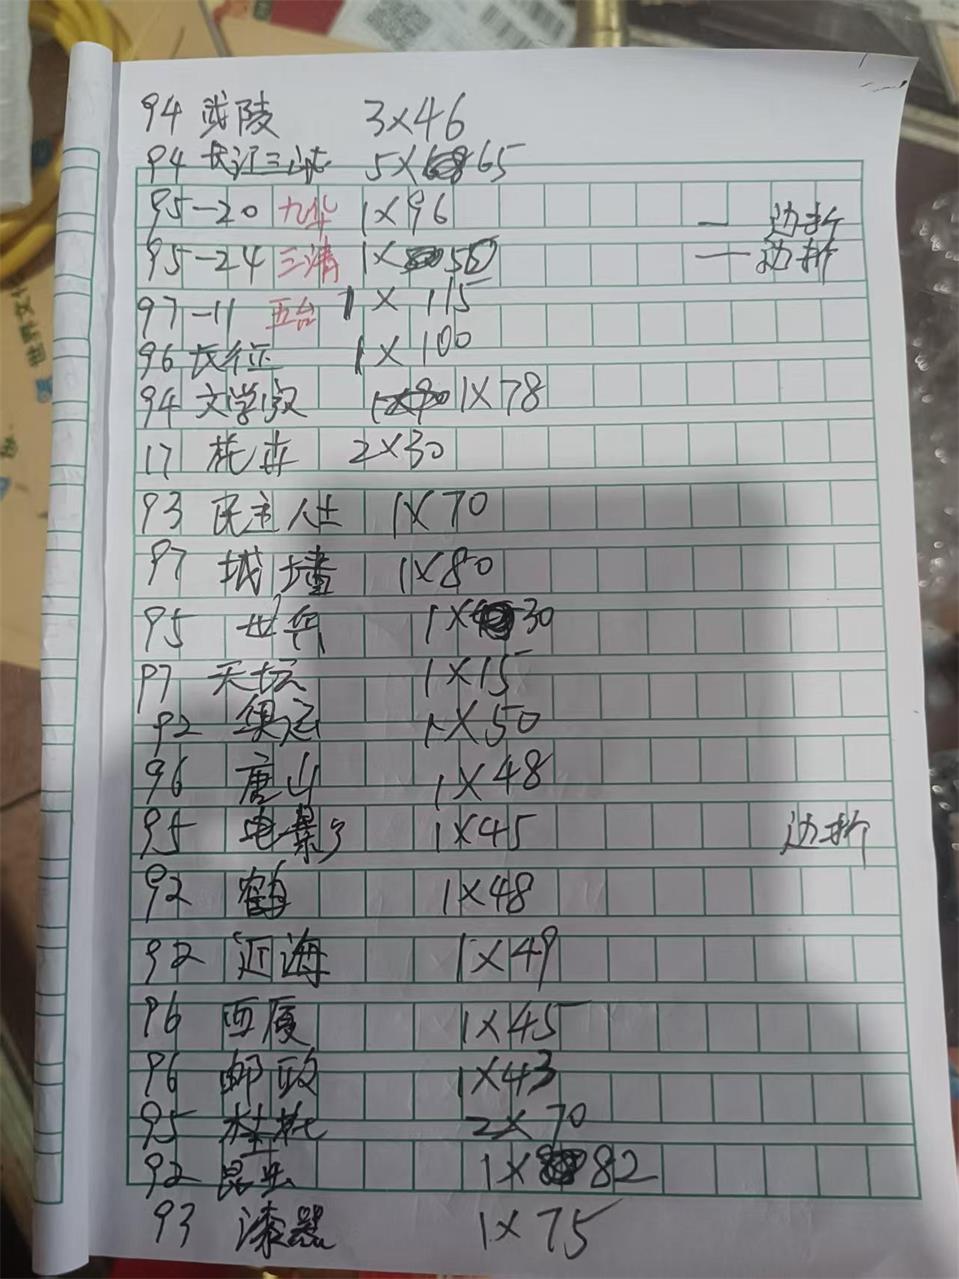 94 武陵 3×46
94 长江三峡 5×65
95-20 九华 1×96 一边折
95-24 三清 1×50 一边折
97-11 五台 1×115
96 长征 1×100
94 文学家 1×78
17 桃花 2×30
93 民主人士 1×70
97 城墙 1×80
95 世乒 1×30
97 天坛 1×15
92 奥运 1×50
96 唐山 1×48
95 电影 1×45 边折
92 鹤 1×48
92 近海 1×49
96 西厦 1×45
96 邮政 1×43
95 桂花 2×70
92 昆虫 1×82
93 漆器 1×75
世界文